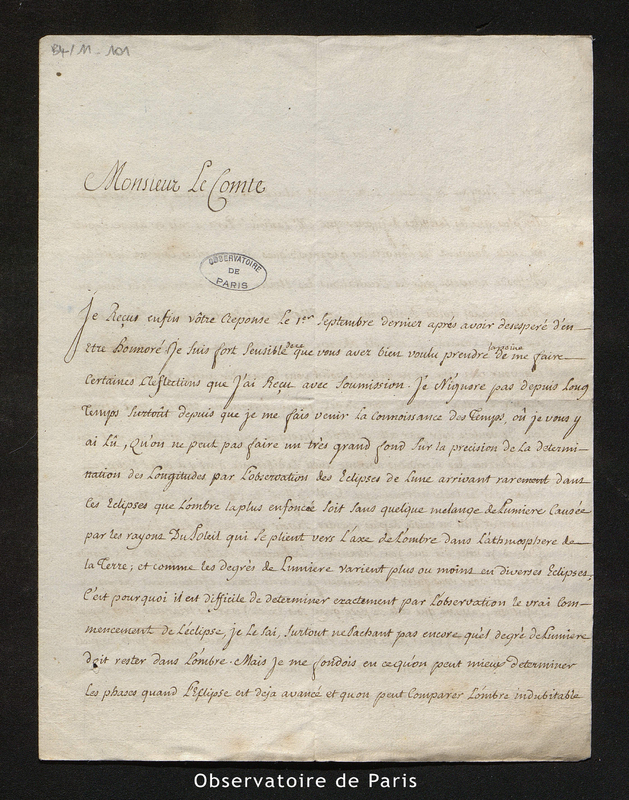 B4/11-101
Monsieur Le Comte
OBSERVATOIRE
DE
PARIS
Je Reçus enfin vôtre Reponse Le 1er Septembre dernier aprés avoir desesperé d'en
etre honnoré. Je suis fort sensible de ce que vous avez bien voulu prendre la peine de me faire
Certaines Reflections que J'ai Reçu avec Soumission. Je N'ignore pas depuis Long
Temps surtout depuis que je me fais venir la Connoissance des Temps, où je vous y
ai Lû, Qu'on ne peut pas faire un très grand fond sur la precision de La determi-
nation des Longitudes par L'observation des Eclipses de Lune arrivant rarement dans
les Eclipses que L'ombre la plus enfoncée soit sans quelque melange de Lumiere Causée
par les rayons Du Soleil qui se plient vers L'axe de L'ombre dans L'athmosphere de
la Terre; et comme les degrés de Lumiere varient plus ou moins en diverses Eclipses,
C'est pourquoi il est difficile de determiner exactement par L'observation le vrai Com-
mencement de L'éclipse, je Le sai, surtout ne sachant pas encore quel degré de Lumiere
doit rester dans L'ombre. Mais Je me fondois en ce qu'on peut mieux determiner
Les phases quand L'Eclipse est deja avancé et qu'on peut Comparer L'ombre indubitable
Observatoire de Paris